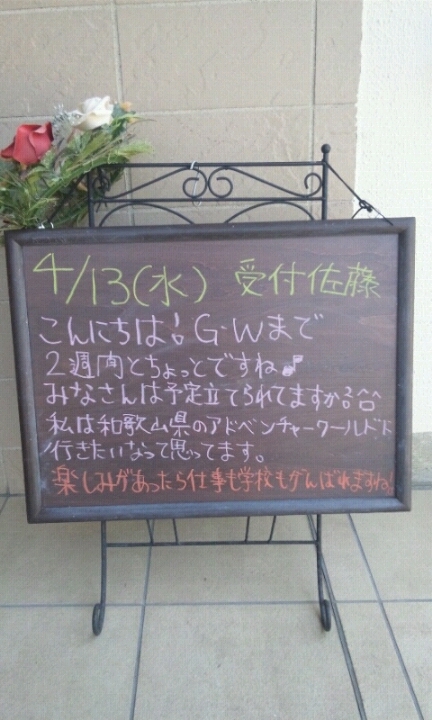 4/13(水) 受付佐藤
こんにちは! G・Wまで
2週間とちょっとですね♪
みなさんは予定立てられてますか?^^
私は和歌山県のアドベンチャーワールドに
行きたいなって思ってます。
楽しみがあったら仕事も学校もがんばれますね!